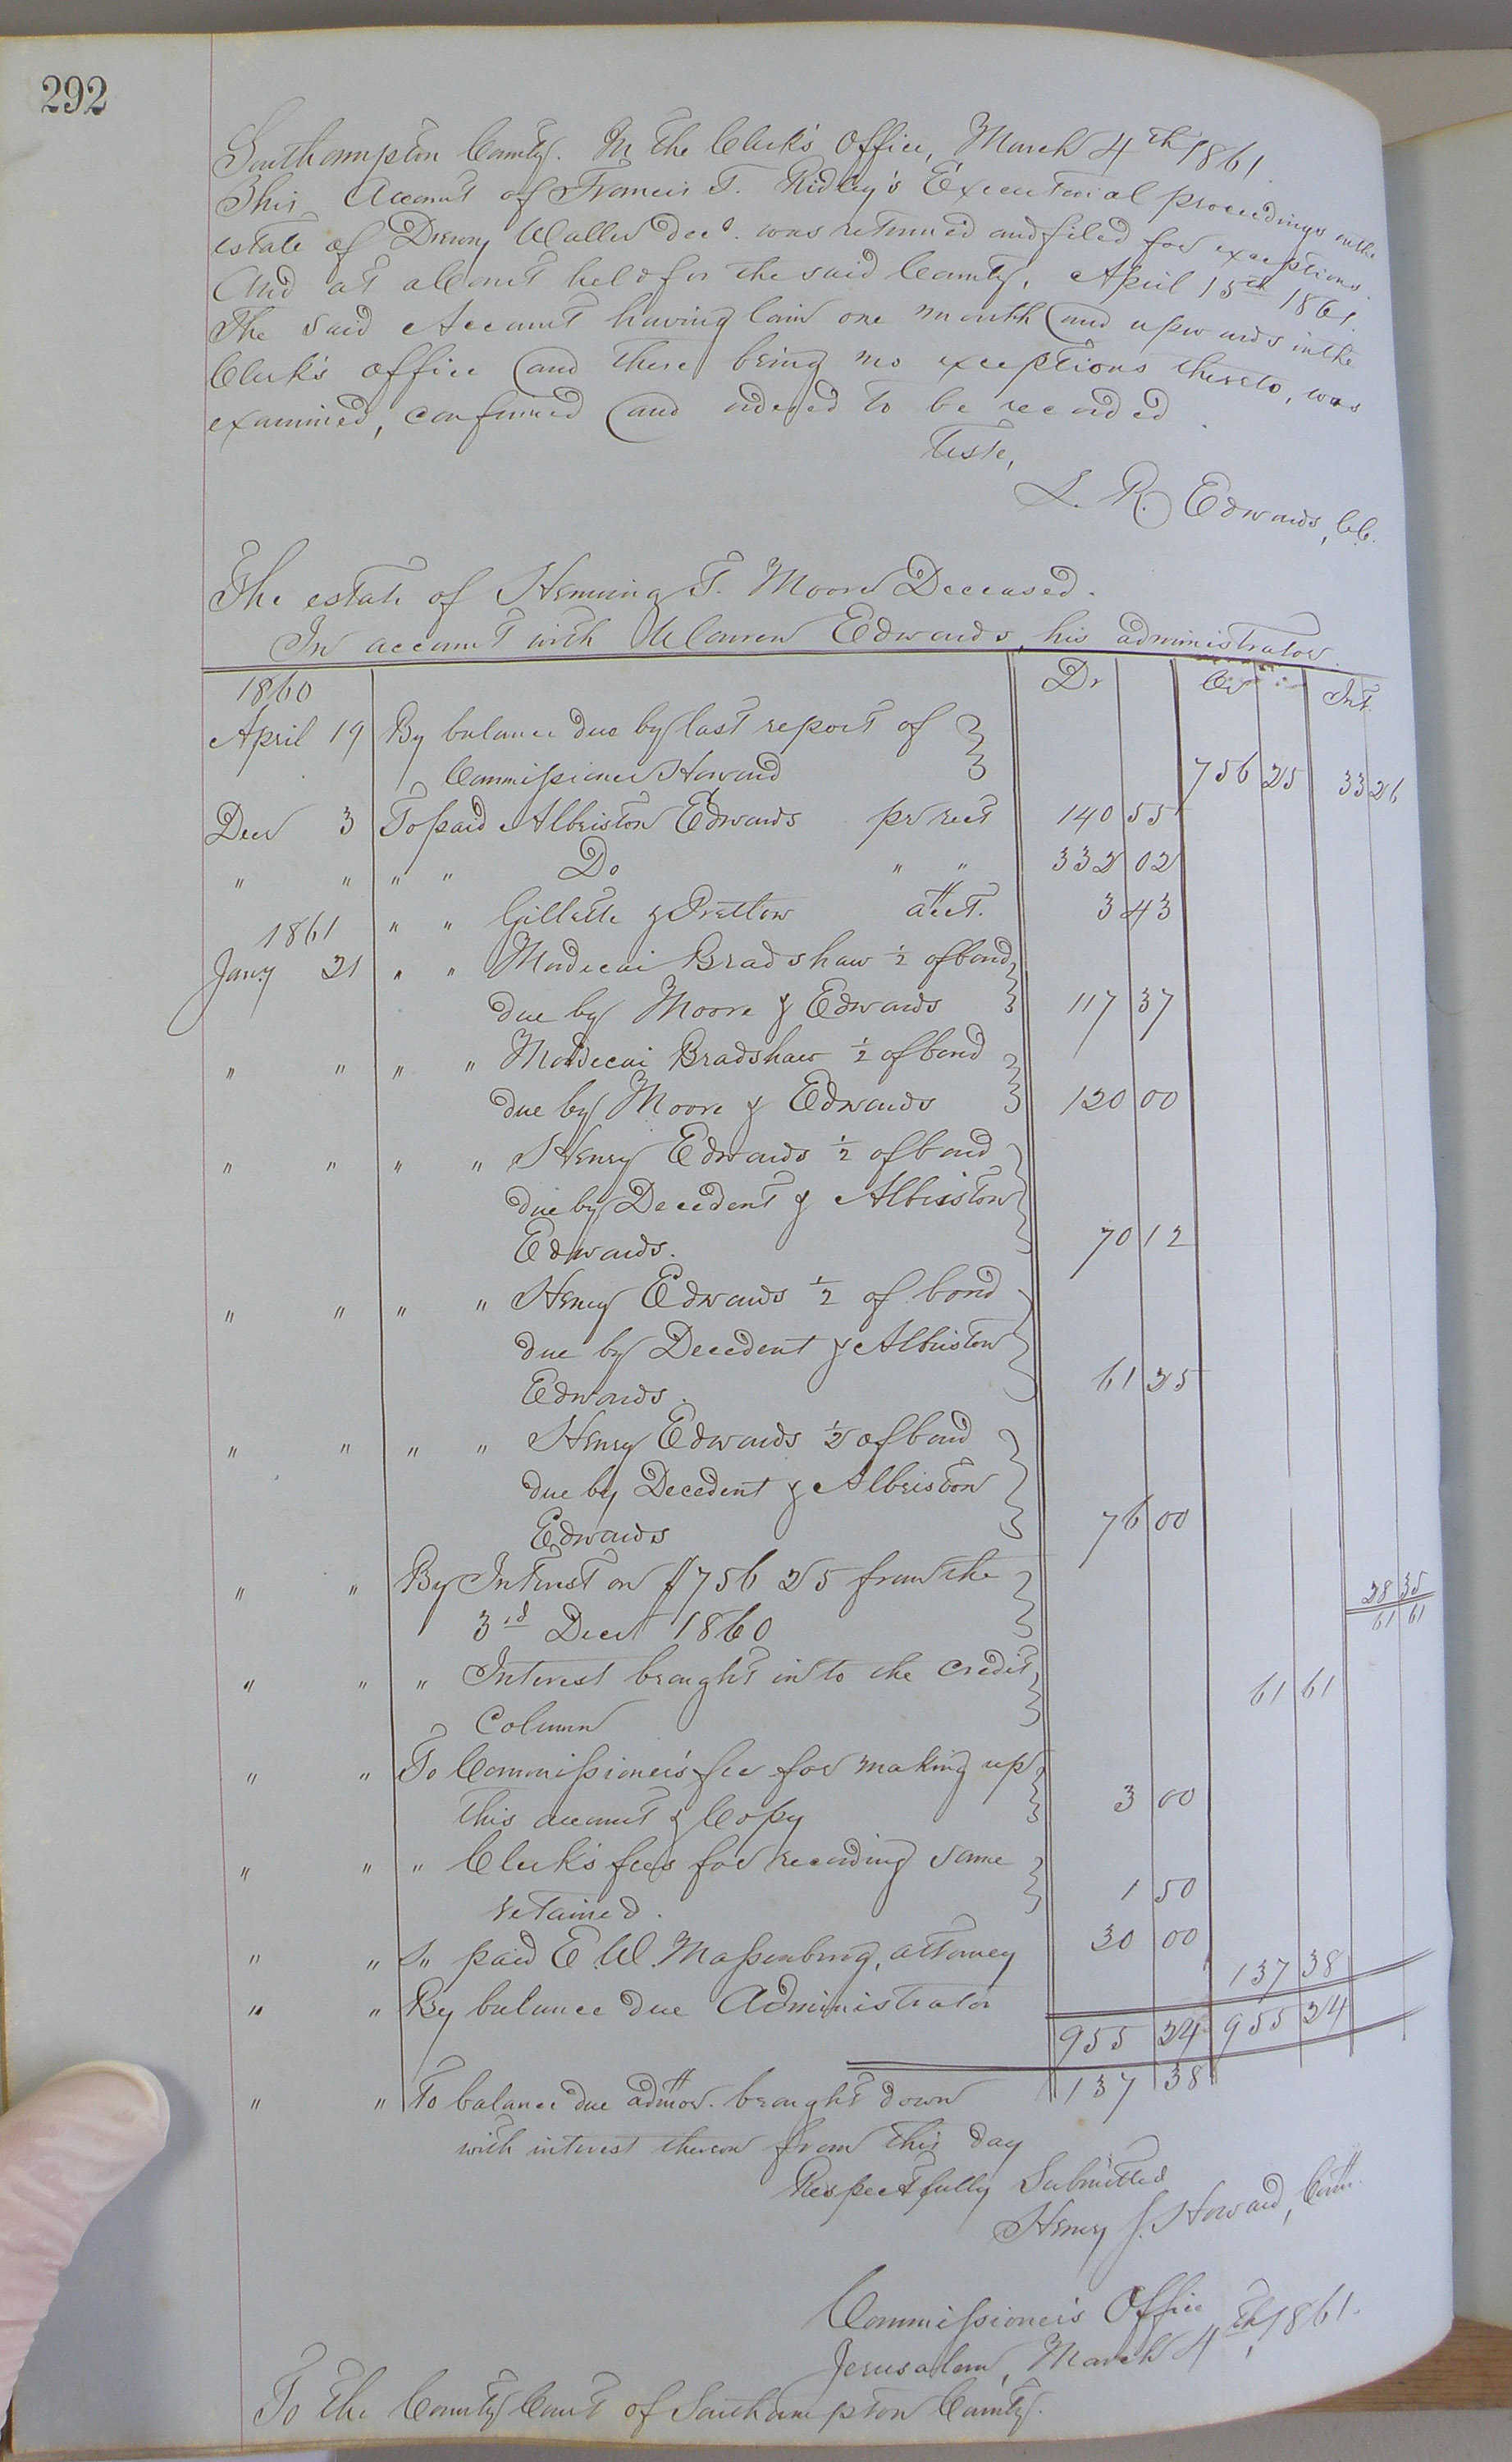 292
Southampton County. In the Clerk's Office, March 4th 1861.
This Account of Francis T. Ridley's Executorial proceedings on the
estate of Drewry Waller decd. was returned and filed for exceptions.
And at a Court held for the said County, April 15th 1861.
The said Account having lain one month and upwards in the
Clerk's office and there being no exceptions thereto, was
examined, confirmed and ordered to be recorded.
Teste,
L. R. Edwards, C.C.
The estate of Heming T. Moore Deceased.
In account with Warren Edwards, his administrator.
1860 Dr Cr Int.
April 19 By balance due by last report of
Commissioner Howard 756 25 33 26
Decr 3 To paid Albriston Edwards pr rect 140 55
" " " " Do " " 332 02
1861 " " Gillette & Pretlow acct. 3 43
Jany 21 " " Mordecai Bradshaw ½ of bond
due by Moore & Edwards 117 37
" " " " Mordecai Bradshaw ½ of bond
due by Moore & Edwards 120 00
" " " " Henry Edwards ½ of bond
due by Decedent & Albriston
Edwards. 70 12
" " " " Henry Edwards ½ of bond
due by Decedent & Albriston
Edwards. 61 25
" " " " Henry Edwards ½ of bond
due by Decedent & Albriston
Edwards 76 00
" " By Interest on $756 25 from the 28 35
3rd Decr 1860 61 61
" " " Interest brought into the credit
Column 61 61
" " To Commissioner's fee for making up
this account & Copy 3 00
" " " Clerk's fees for recording same
retained. 1 50
" " " paid E. W. Massenburg, attorney 30 00
" " By balance due Administrator 137 38
955 24 955 24
" " To balance due admor. brought down 137 38
with interest thereon from this day
Respectfully Submitted
Henry J. Howard, Comr.
Commissioner's Office
Jerusalem, March 4th, 1861.
To the County Court of Southampton County.